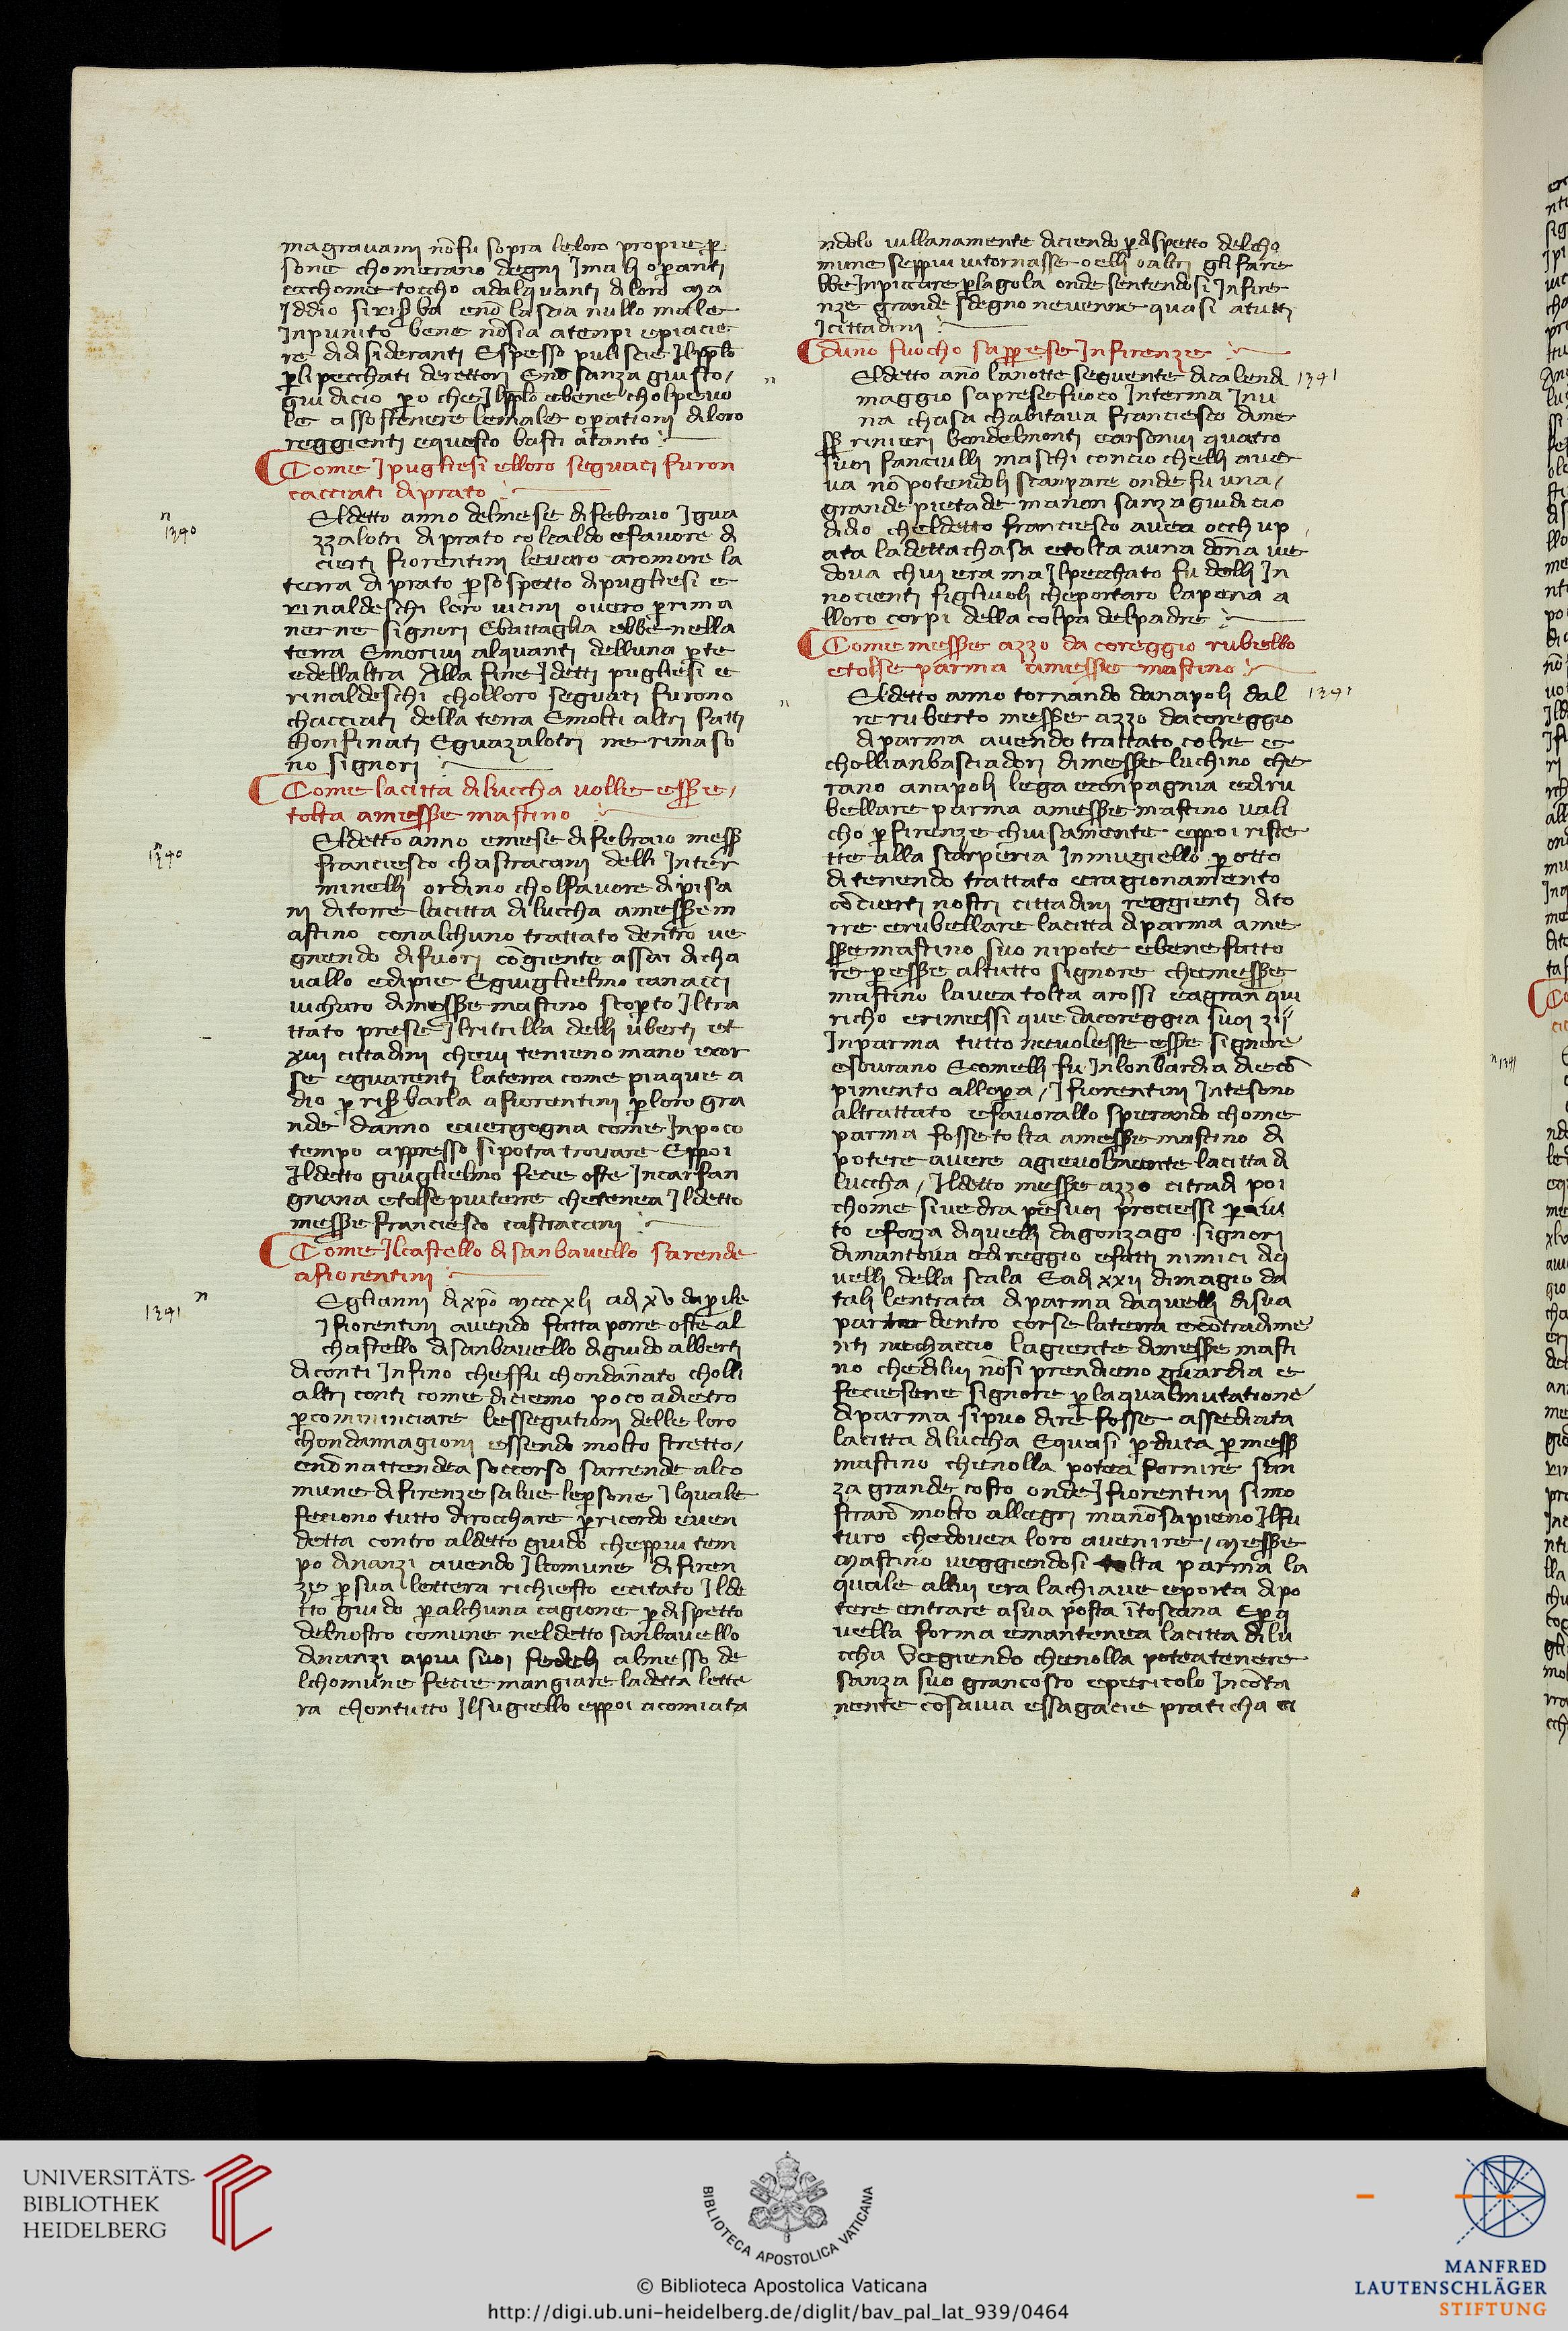 ma gravami nō fu sopra le loro propie p̱
sone chomerano degni J mali op̱anti
ecchome toccho ad alquanti di loro Ma
Jddio si riserba e nō lascia nullo male
Jnpunito bene nō sia a tenpi e piacie
re di disideranti E spesso puliscie Jl pplo
p̱ li pecchati de rettori E nō sanza giusto /
giudicio p̱o che Jl pplo e bene cholpevo
le assostenere le male op̱ationi di loro
reggienti e questo basti atanto
Come J pugliesi e lloro seguaci furon
cacciati di prato
El detto anno del mese di febraio J gua
zzalotri di prato col caldo e favore di
cierti fiorentini levaro a romore la
terra di prato p̱ sospetto di pugliesi e
rinaldeschi loro vicini overo p̱ rima
nerne signori E battaglia ebbe nella
terra E morivi alquanti dell una p̱te
e dell altra Alla fine J detti pugliesi e
rinaldeschi cho lloro seguaci furono
chacciati della terra E molti altri fatti
chonfinati E guazalotri ne rimaso
no signori
Come la citta di luccha volle essere /
tolta a messer mastino
El detto anno e mese di febraio mess
franciesco chastracani delli Inter
minelli ordino chol favore di pisa
ni di torre la citta di luccha a messer m
astino con alchuno trattato dentro ve
gnendo di fuori cō giente assai di cha
vallo e di pie E guiglielmo canacci
vicharo di messer mastino scop̱to Jl tra
ttato prese J britrilla delli uberti et
xvii cittadini che vi tenieno mano e cor
se e guarenti la terra come piaque a
dio p̱ riserbarla a fiorentini p̱ loro gra
nde danno e vergogna come Jn poco
tempo appresso si potra trovare E ppoi
Jl detto guiglielmo fecie oste Jn carfan
gnana e tolse piu terre che tenea Jl detto
messer franciesco castracani
Come Jl castello di san bavello s arende
a fiorentini
E gli anni di xp̄o Mcccxli a di xv d aprile
J fiorentini avendo fatta porre oste al
chastello di san bavello di guido alberti
di conti Jnfino che ffu chondān̄ato cholli
altri conti come diciemo poco adietro
p̱ cominciare l essegutioni delle loro
chondannagioni essendo molto stretto /
e nō n attendea soccorso s arrende al co
mune di firenze salve le p̱sone Jl quale
feciono tutto dirocchare p̱ ricordo e ven
detta contro al detto guido che ppiu tem
po dinanzi avendo Jl comune di firen
ze p̱ sua lettera richiesto e citato Jl de
tto guido p̱ alchuna cagione p̱ dispetto
del nostro comune nel detto san bavello
dinanzi a piu suoi fedeli al messo de
l chomune fecie mangiare la detta lette
ra chon tutto Jl sugiello e ppoi acomiata
ndolo villanamente diciendo p̱ dispetto del cho
mune se ppiu vi tornasse o elli o altri gli fare
bbe Jnpiccare p̱ la gola onde sentendosi Jn fire
nze grande sdegno ne venne quasi a tutti
J cittadini
D uno fuocho s apprese Jn firenze
El detto an̄o la notte seguente di calendi
maggio s aprese fuoco Jn terma Jn u
na chasa ch abitava franciesco di me
sser rinieri bondelmonti e arsonvi quatro
suoi fanciulli maschi con cio ch elli ave
va nō potendoli scanpare onde fu una /
grande pieta de ma non sanza giudicio
di dio che l detto franciesco avea occhup
ata la detta chasa e tolta a una dōn̄a ve
dova chui era ma Jl pecchato fu delli Jn
nocienti figlivoli che portaro la pena a
lloro corpi della colpa del padre
Come messer azzo da coreggio rubello
e tolse parma a messer mastino
El detto anno tornando da napoli dal
re ruberto messer azzo da coreggio
di parma avendo trattato col re e
cholli anbasciadori di messer luchino che
rano a napoli lega e conpagnia e di ru
bellare parma a messer mastino vali
cho p̱ firenze chiusamente e ppoi riste
tte alla scarperia Jn mugiello p̱ otto
di tenendo trattato e ragionamento
cō cierti nostri cittadini reggienti di to
rre e rubellare la citta di parma a me
sser mastino suo nipote e bene fatto
re p̱ esser al tutto signore che messer
mastino l avea tolta a rossi e a gran qui
richo e rimessi que da coreggia suoi zii
Jn parma tutto ne volesse esser signore
e sovrano E com elli fu Jn lonbardia die cō
pimento all op̱a / J fiorentini Jntesono
al trattato e favorallo sperando chome
parma fosse tolta a messer mastino di
potere avere agievolmente la citta di
luccha / Jl detto messer azzo ci tradi poi
chome si vedra pe suoi prociessi p̱ aiu
to e forza di quelli da gonzago signori
di mantova e di reggio e fatti nimici di q
uelli della scala E a di xxii di magio da
tali l entrata di parma da quelli di sua
parte dentro corse la terra e cōtradime
nti ne chaccio la giente di messer masti
no che di lui nō si prendieno guardia e
feciesene signore p̱ la qual mutatione
di parma si puo dire fosse assediata
la citta di luccha E quasi p̱duta p̱ mess
mastino che nolla potea fornire san
za grande costo onde J fiorentini si mo
strarō molto allegri ma nō sapieno Jl fu
turo che dovea loro avenire / Messer
Mastino veggiendosi tolta parma la
quale a llui era la chiave e porta di po
tere entrare a sua posta ī toscana E p̱ q
uella forma e mantenea la citta di lu
ccha Vegiendo che nolla potea tenere
sanza suo gran costo e pericolo Jncōta
nente cō savia e ssagacie praticha ci
n
1340
n
1340
n
1341
n
1341
n
1341
n 1341
UNIVERSITÄTS-
BIBLIOTHEK
HEIDELBERG
BIBLIOTECA APOSTOLICA VATICANA
© Biblioteca Apostolica Vaticana
http://digi.ub.uni-heidelberg.de/diglit/bav_pal_lat_939/0464
MANFRED
LAUTENSCHLÄGER
STIFTUNG